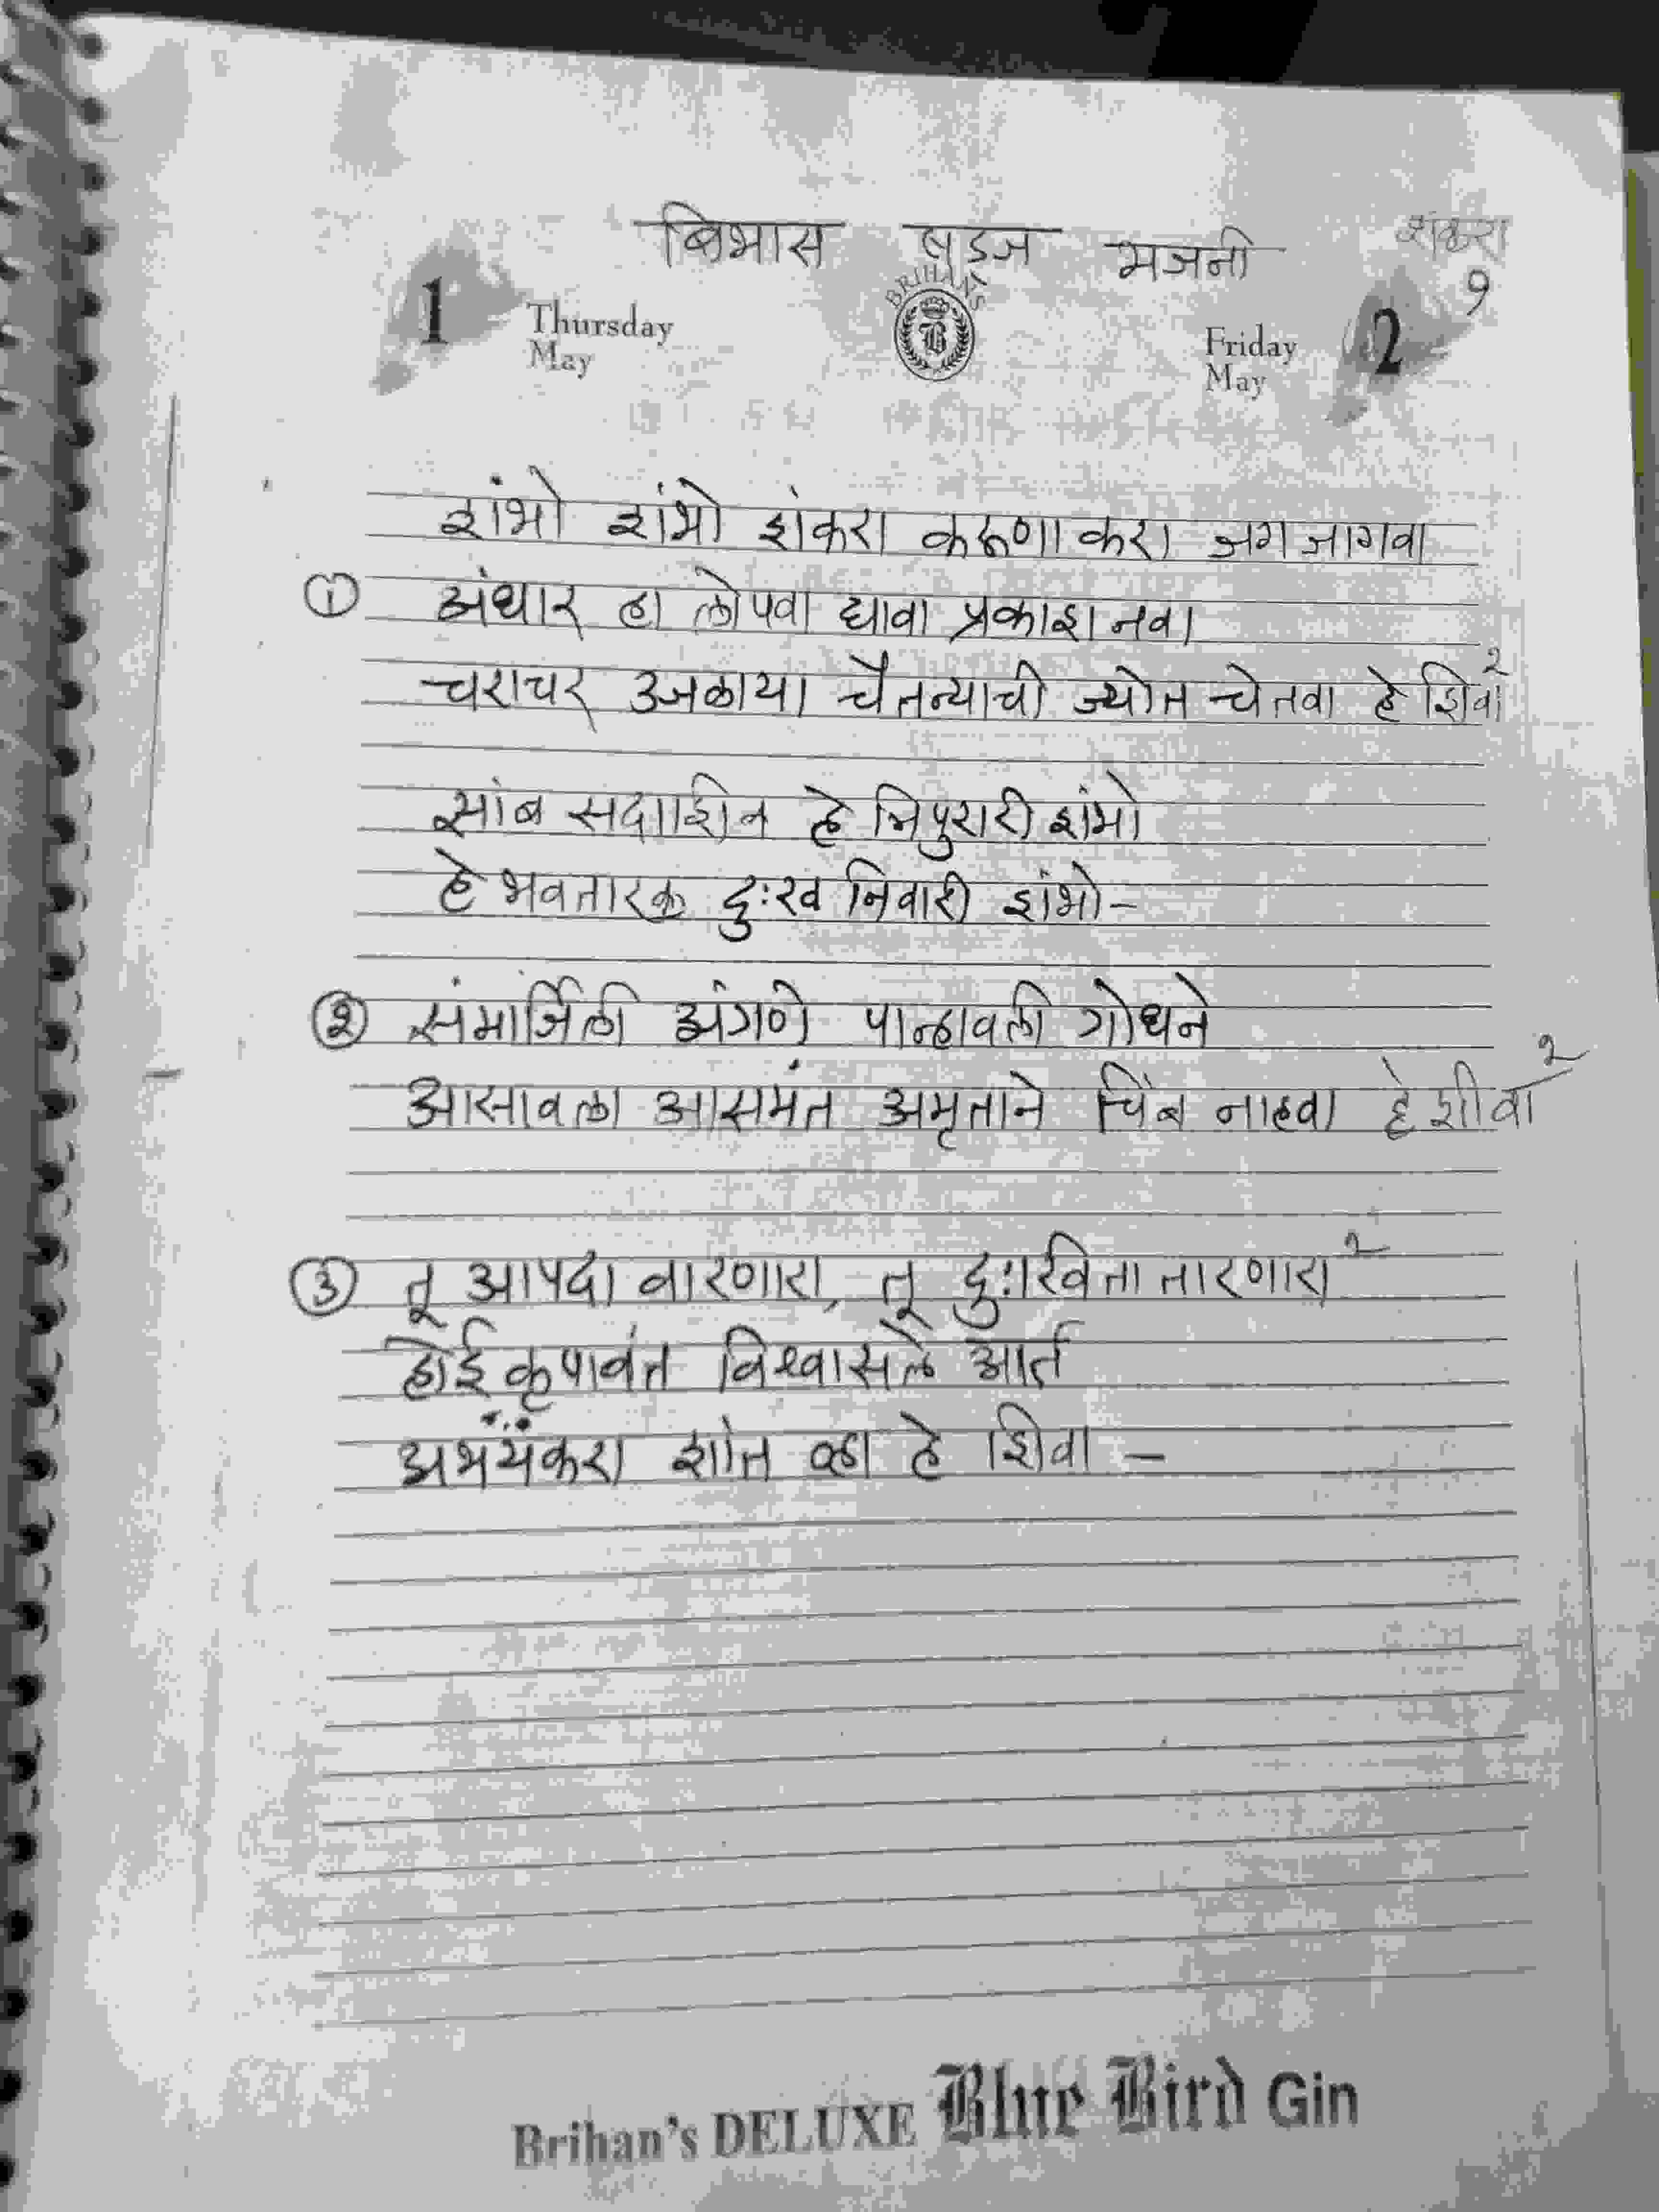 बिभास षड्ज भजनी शंकरा
१
1 Thursday May BRIHANS B Friday May 2
शंभो शंभो शंकरा करूणा करा जग जागवा
① अंधार हा लोपवा द्यावा प्रकाश नवा
चराचर उजळाया चैतन्याची ज्योत चेतवा हे शिवा २
सांब सदाशिव हे त्रिपुरारी शंभो
हे भवतारक दुःख निवारी शंभो –
② संमार्जिली अंगणे पान्हावली गोधने
आसावला आसमंत अमृताने चिंब नाहवा हे शीवा २
③ तू आपदा वारणारा, तू दुःखिता तारणारा २
होई कृपावंत विश्वासले आर्त
अभयंकरा शांत व्हा हे शिवा –
Brihan's DELUXE Blue Bird Gin